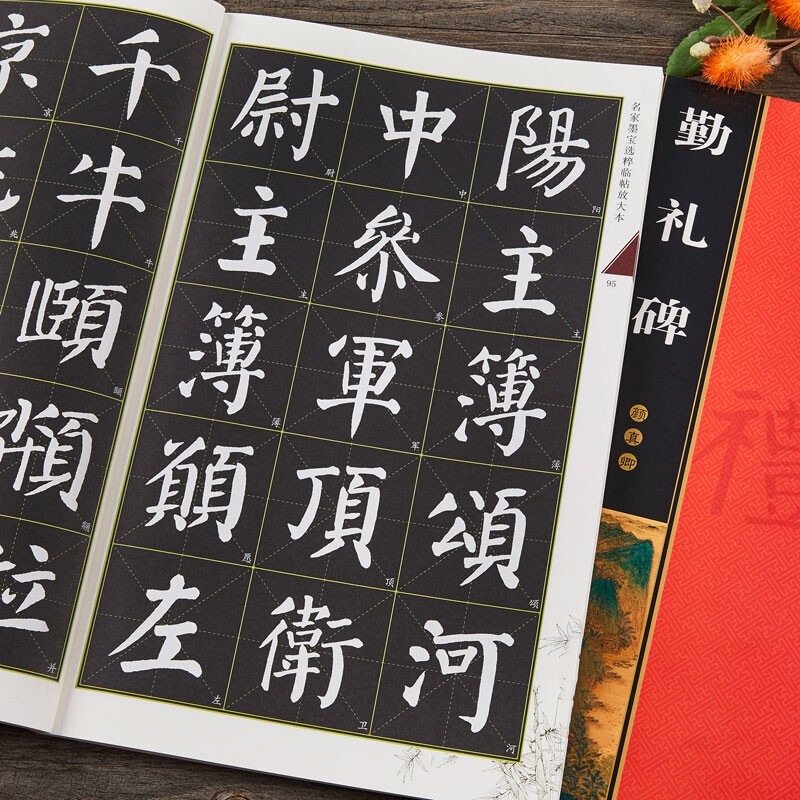 陽主簿頌河
阳主簿颂河
中參軍頂衛
中参军顶卫
尉主簿願左
尉主簿愿左
名家墨宝选粹临帖放大本
95
千牛頤
千牛颐
並
并
京
京
兆
勤礼碑
颜真卿
禮